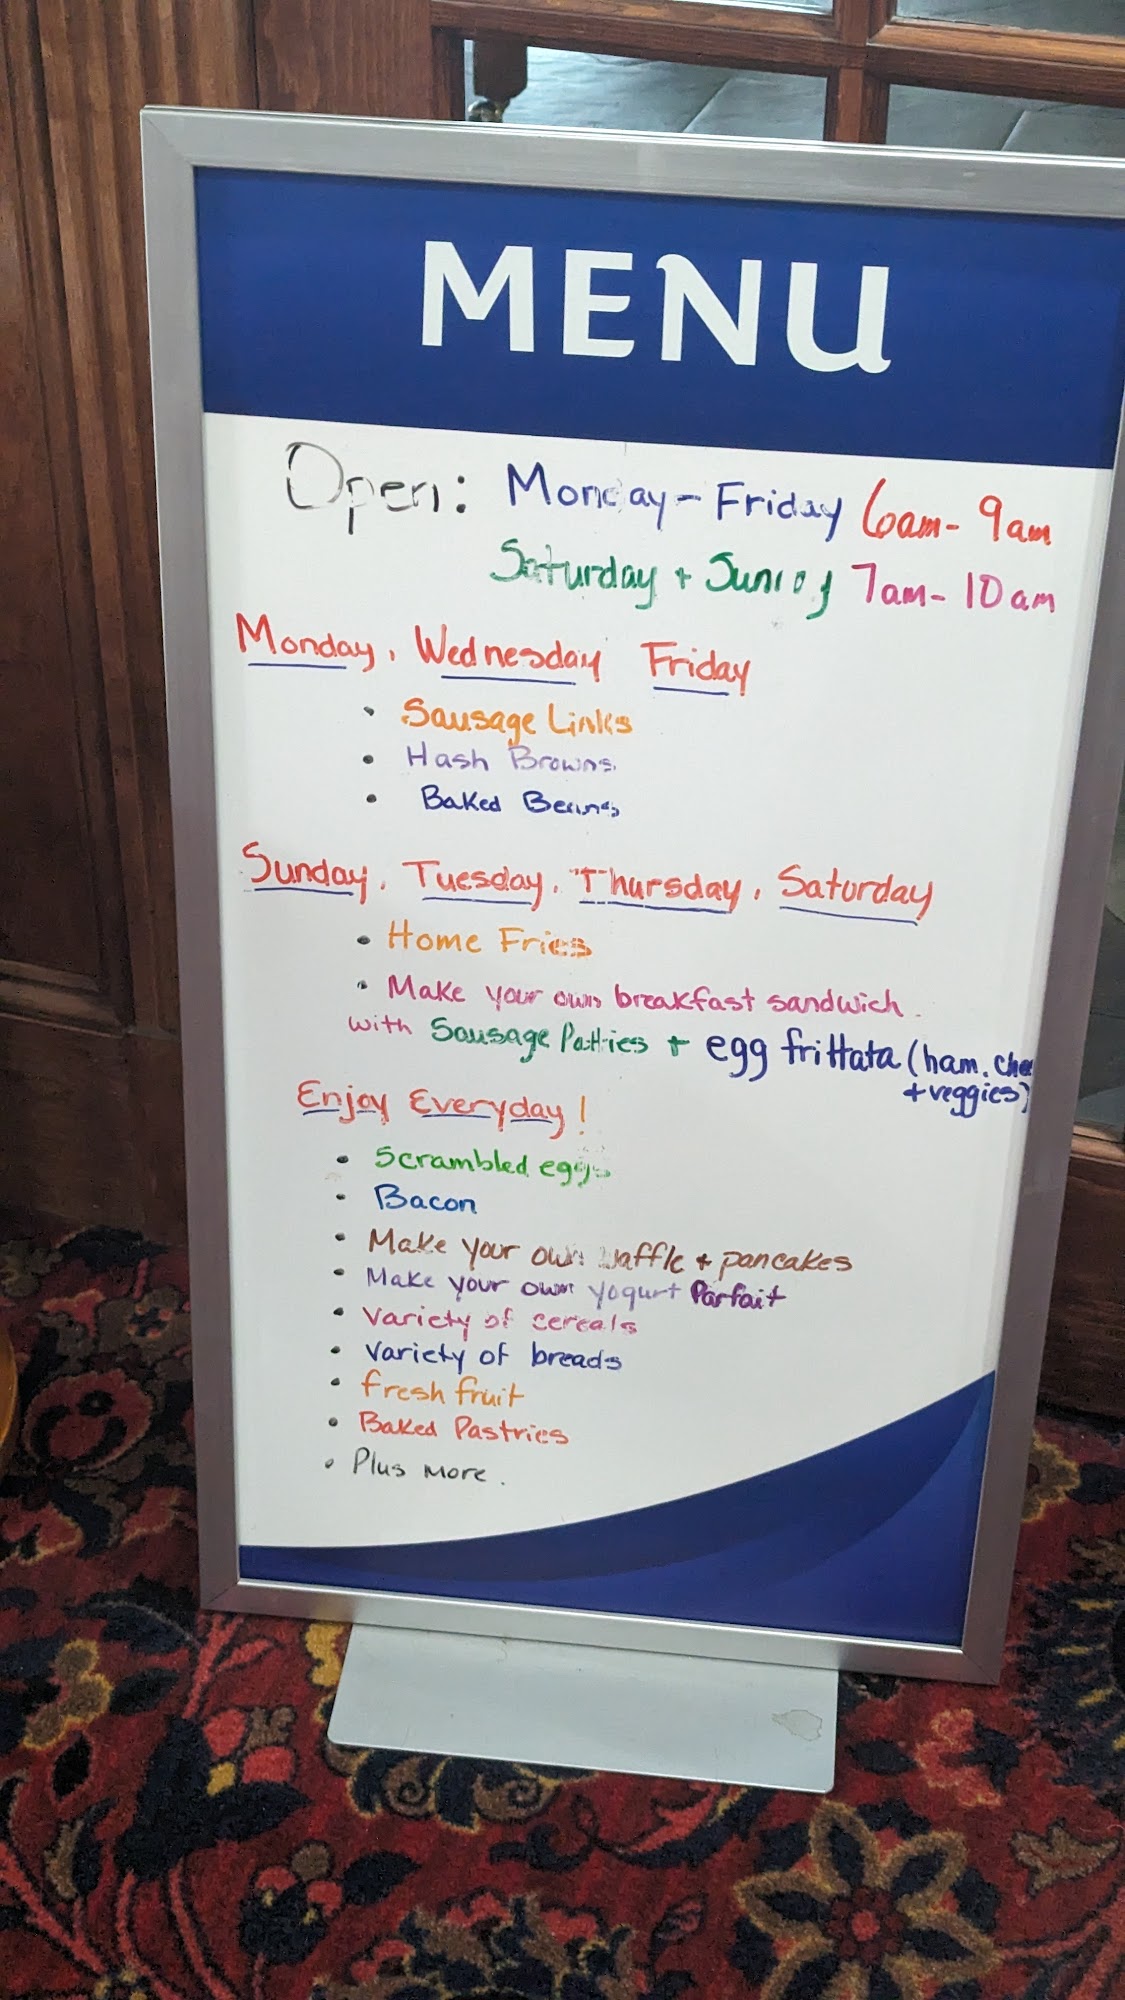 MENU
Open: Monday - Friday 6am - 9am
Saturday + Sunday 7am - 10am
Monday, Wednesday Friday
• Sausage Links
• Hash Browns
• Baked Beans
Sunday, Tuesday, Thursday, Saturday
• Home Fries
• Make your own breakfast sandwich.
with Sausage Patties + egg frittata (ham, chee
+ veggies)
Enjoy Everyday!
• Scrambled eggs
• Bacon
• Make your own waffle + pancakes
• Make your own yogurt Parfait
• Variety of cereals
• Variety of breads
• fresh fruit
• Baked Pastries
• Plus more.